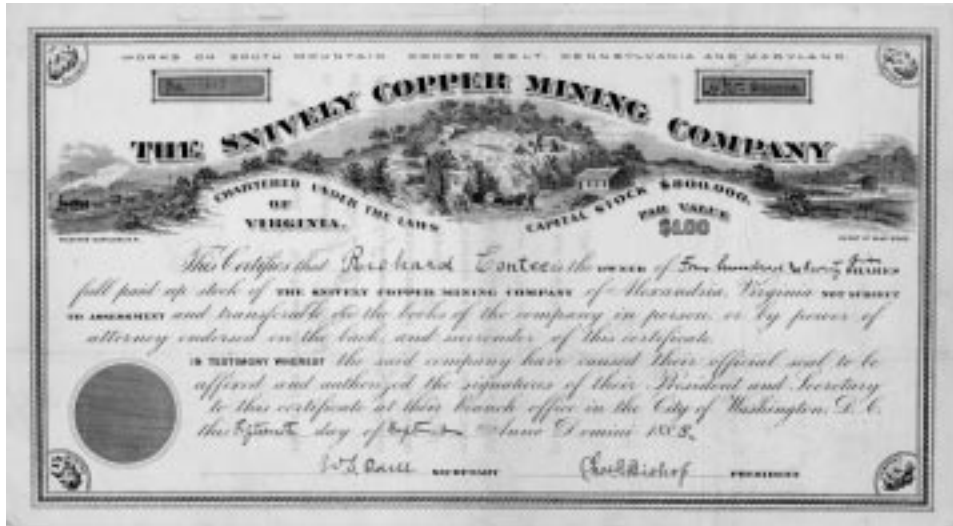 WORKS ON SOUTH MOUNTAIN COPPER BELT, PENNSYLVANIA AND MARYLAND.
No.
Shares
THE SNIVELY COPPER MINING COMPANY
CHARTERED UNDER THE LAWS
OF
VIRGINIA.
CAPITAL STOCK $800,000.
PAR VALUE
$1.00
This Certifies that Richard Contee is the OWNER of Four hundred & twenty SHARES
full paid up stock of THE SNIVELY COPPER MINING COMPANY of Alexandria, Virginia NOT SUBJECT
TO ASSESSMENT and transferable on the books of the company in person, or by power of
attorney endorsed on the back, and surrender of this certificate.
IN TESTIMONY WHEREOF the said company have caused their official seal to be
affixed and authorized the signatures of their President and Secretary
to this certificate at their branch office in the City of Washington, D. C.
this Fifteenth day of Anno Domini 188
SECRETARY PRESIDENT